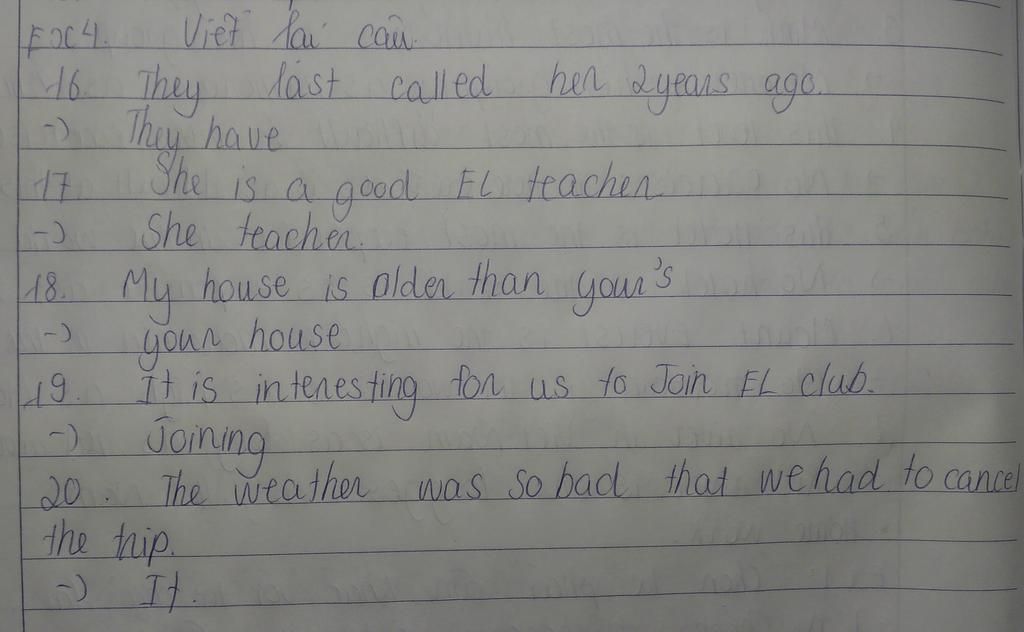 EX4. Viết lại câu.
16. They last called her 2years ago.
-) They have
17 She is a good EL teacher
-) She teacher.
18. My house is older than your's
-) your house
19. It is interesting for us to Join EL club.
-) Joining
20. The weather was so bad that we had to cancel
the trip.
-) It.